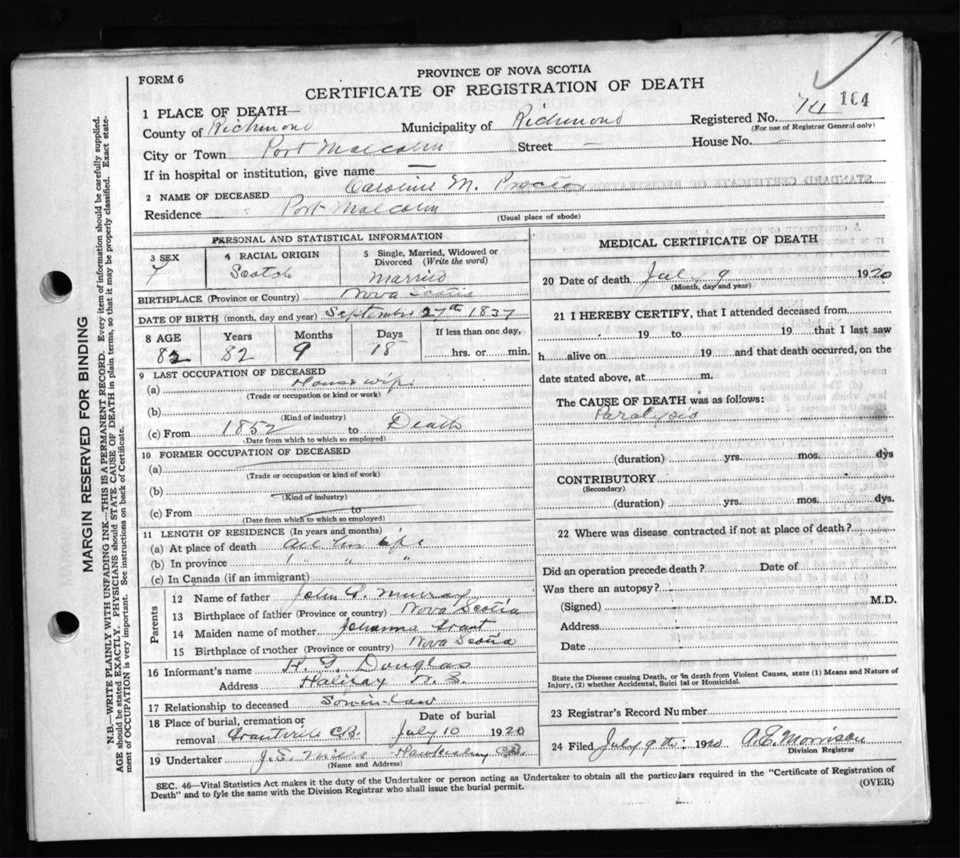 PROVINCE OF NOVA SCOTIA
FORM 6
CERTIFICATE OF REGISTRATION OF DEATH
1 PLACE OF DEATH—
Registered No. 74 164
(For use of Registrar General only)
County of Richmond Municipality of Richmond
City or Town Port Malcolm Street — House No. —
If in hospital or institution, give name —
2 NAME OF DECEASED Caroline M. Proctor
Residence Port Malcolm
(Usual place of abode)
PERSONAL AND STATISTICAL INFORMATION
3 SEX 4 RACIAL ORIGIN 5 Single, Married, Widowed or Divorced (Write the word)
F Scotch Married
BIRTHPLACE (Province or Country) Nova Scotia
DATE OF BIRTH (month, day and year) September 27th 1837
8 AGE Years Months Days If less than one day,
82 82 9 18 hrs. or min.
9 LAST OCCUPATION OF DECEASED
(a) House wife
(Trade or occupation or kind of work)
(b)
(Kind of industry)
(c) From 1852 to Death
(Date from which to which so employed)
10 FORMER OCCUPATION OF DECEASED
(a)
(Trade or occupation or kind of work)
(b)
(Kind of industry)
(c) From to
(Date from which to which so employed)
11 LENGTH OF RESIDENCE (In years and months)
(a) At place of death All her life
(b) In province " " "
(c) In Canada (if an immigrant)
Parents
12 Name of father John G. Murray
13 Birthplace of father (Province or country) Nova Scotia
14 Maiden name of mother Johanna Grant
15 Birthplace of mother (Province or country) Nova Scotia
16 Informant's name H. G. Douglas
Address Halifax N. S.
17 Relationship to deceased Son in law
18 Place of burial, cremation or removal Grantville C.B. Date of burial July 10 1920
19 Undertaker J. E. Mills Hawkesbury C.B.
(Name and Address)
MEDICAL CERTIFICATE OF DEATH
20 Date of death July 9 1920
(Month, day and year)
21 I HEREBY CERTIFY, that I attended deceased from
19 to 19 that I last saw
h alive on 19 and that death occurred, on the
date stated above, at m.
The CAUSE OF DEATH was as follows:
Paralysis
(duration) yrs. mos. dys
CONTRIBUTORY
(Secondary)
(duration) yrs. mos. dys.
22 Where was disease contracted if not at place of death?
Did an operation precede death? Date of
Was there an autopsy?
(Signed) M.D.
Address
Date
State the Disease causing Death, or in death from Violent Causes, state (1) Means and Nature of
Injury, (2) whether Accidental, Suicidal or Homicidal.
23 Registrar's Record Number
24 Filed July 9th 1920 A. E. Morrison
Division Registrar
SEC. 46—Vital Statistics Act makes it the duty of the Undertaker or person acting as Undertaker to obtain all the particulars required in the "Certificate of Registration of
Death" and to fyle the same with the Division Registrar who shall issue the burial permit.
(OVER)
MARGIN RESERVED FOR BINDING
N.B.—WRITE PLAINLY WITH UNFADING INK—THIS IS A PERMANENT RECORD. Every item of information should be carefully supplied.
AGE should be stated EXACTLY. PHYSICIANS should STATE CAUSE OF DEATH in plain terms, so that it may be properly classified. Exact state-
ment of OCCUPATION is very important. See instructions on back of Certificate.